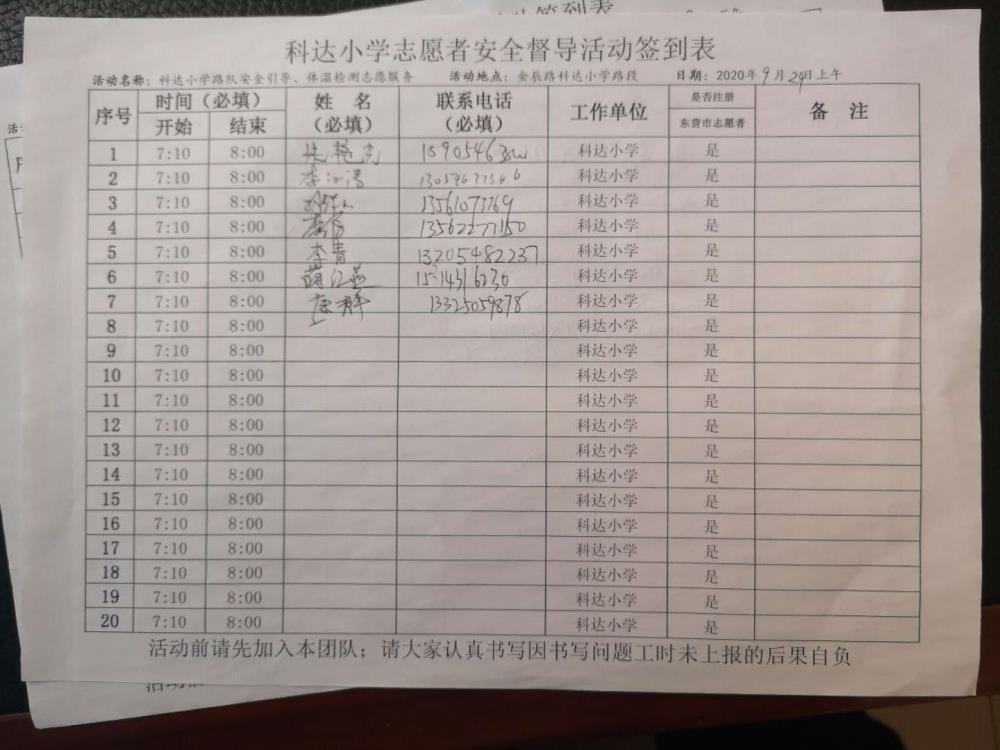 科达小学志愿者安全督导活动签到表
活动名称：科达小学路队安全引导、体温检测志愿服务 活动地点：金辰路科达小学路段 日期：2020年9月29日上午
序号 时间（必填） 姓 名（必填） 联系电话（必填） 工作单位 是否注册东营市志愿者 备 注
开始 结束
1 7:10 8:00 科达小学 是
2 7:10 8:00 科达小学 是
3 7:10 8:00 13561073769 科达小学 是
4 7:10 8:00 13562277150 科达小学 是
5 7:10 8:00 李青 13205482237 科达小学 是
6 7:10 8:00 蒋红燕 科达小学 是
7 7:10 8:00 康群 13325059878 科达小学 是
8 7:10 8:00 科达小学 是
9 7:10 8:00 科达小学 是
10 7:10 8:00 科达小学 是
11 7:10 8:00 科达小学 是
12 7:10 8:00 科达小学 是
13 7:10 8:00 科达小学 是
14 7:10 8:00 科达小学 是
15 7:10 8:00 科达小学 是
16 7:10 8:00 科达小学 是
17 7:10 8:00 科达小学 是
18 7:10 8:00 科达小学 是
19 7:10 8:00 科达小学 是
20 7:10 8:00 科达小学 是
活动前请先加入本团队；请大家认真书写因书写问题工时未上报的后果自负